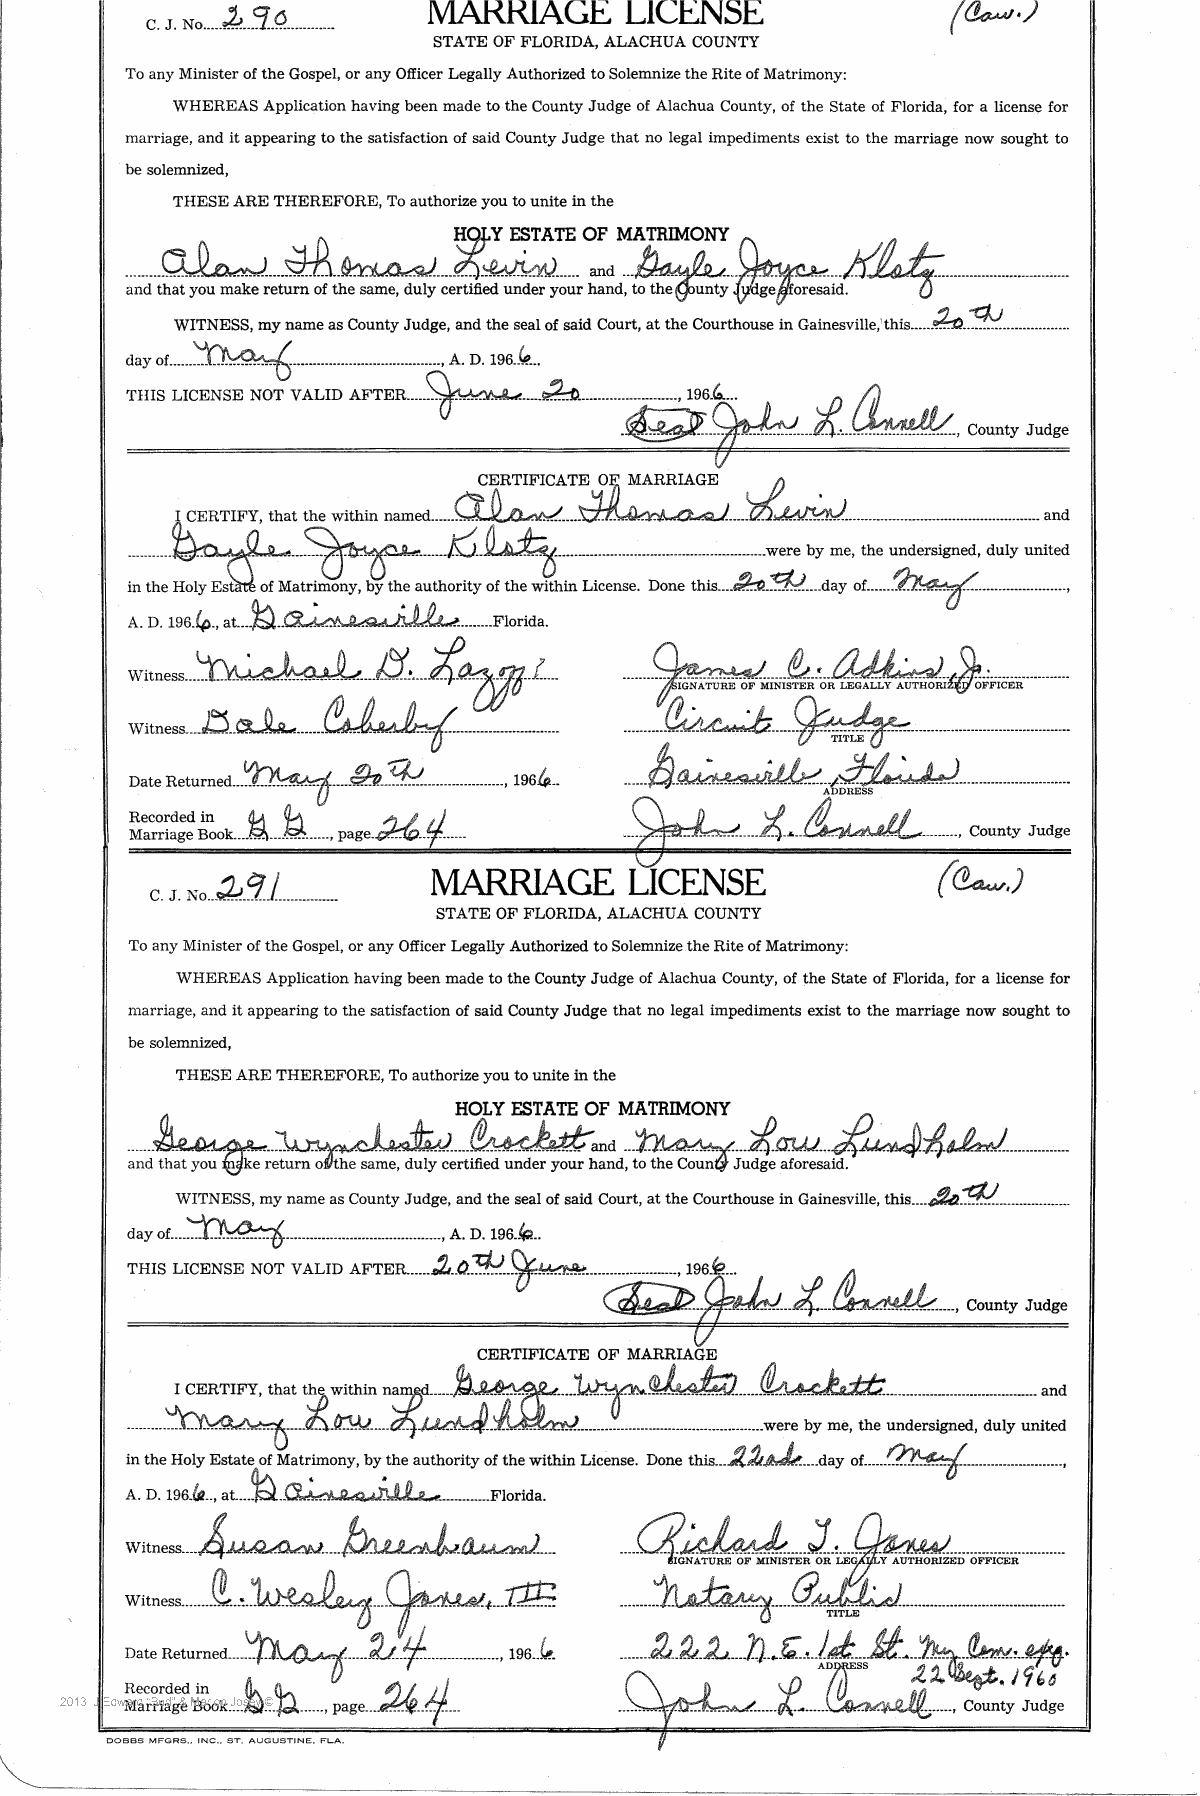 C. J. No. 290 MARRIAGE LICENSE (Caw.)
STATE OF FLORIDA, ALACHUA COUNTY
To any Minister of the Gospel, or any Officer Legally Authorized to Solemnize the Rite of Matrimony:
WHEREAS Application having been made to the County Judge of Alachua County, of the State of Florida, for a license for
marriage, and it appearing to the satisfaction of said County Judge that no legal impediments exist to the marriage now sought to
be solemnized,
THESE ARE THEREFORE, To authorize you to unite in the
HOLY ESTATE OF MATRIMONY
Alan Thomas Levin and Gayle Joyce Klotz
and that you make return of the same, duly certified under your hand, to the County Judge aforesaid.
WITNESS, my name as County Judge, and the seal of said Court, at the Courthouse in Gainesville, this 20th
day of May, A. D. 1966.
THIS LICENSE NOT VALID AFTER June 20, 1966
Seal John L. Connell, County Judge
CERTIFICATE OF MARRIAGE
I CERTIFY, that the within named Alan Thomas Levin and
Gayle Joyce Klotz were by me, the undersigned, duly united
in the Holy Estate of Matrimony, by the authority of the within License. Done this 20th day of May,
A. D. 1966, at Gainesville Florida.
Witness Michael D. James C. Adkins, Jr.
SIGNATURE OF MINISTER OR LEGALLY AUTHORIZED OFFICER
Witness Dale Circuit Judge
TITLE
Date Returned May 20th, 1966 Gainesville, Florida
ADDRESS
Recorded in
Marriage Book G G, page 264 John L. Connell, County Judge
C. J. No. 291 MARRIAGE LICENSE (Caw.)
STATE OF FLORIDA, ALACHUA COUNTY
To any Minister of the Gospel, or any Officer Legally Authorized to Solemnize the Rite of Matrimony:
WHEREAS Application having been made to the County Judge of Alachua County, of the State of Florida, for a license for
marriage, and it appearing to the satisfaction of said County Judge that no legal impediments exist to the marriage now sought to
be solemnized,
THESE ARE THEREFORE, To authorize you to unite in the
HOLY ESTATE OF MATRIMONY
George Wynchester Crockett and Mary Lou Lundholm
and that you make return of the same, duly certified under your hand, to the County Judge aforesaid.
WITNESS, my name as County Judge, and the seal of said Court, at the Courthouse in Gainesville, this 20th
day of May, A. D. 1966.
THIS LICENSE NOT VALID AFTER 20th June, 1966
Seal John L. Connell, County Judge
CERTIFICATE OF MARRIAGE
I CERTIFY, that the within named George Wynchester Crockett and
Mary Lou Lundholm were by me, the undersigned, duly united
in the Holy Estate of Matrimony, by the authority of the within License. Done this 22nd day of May,
A. D. 1966, at Gainesville Florida.
Witness Susan Greenbaum Richard T. Jones
SIGNATURE OF MINISTER OR LEGALLY AUTHORIZED OFFICER
Witness C. Wesley Jones, III Notary Public
TITLE
Date Returned May 24, 1966 222 N.E. 1st St. My Com. exp.
ADDRESS 22 Sept. 1960
Recorded in
Marriage Book G G, page 264 John L. Connell, County Judge
DOBBS MFGRS., INC., ST. AUGUSTINE, FLA.